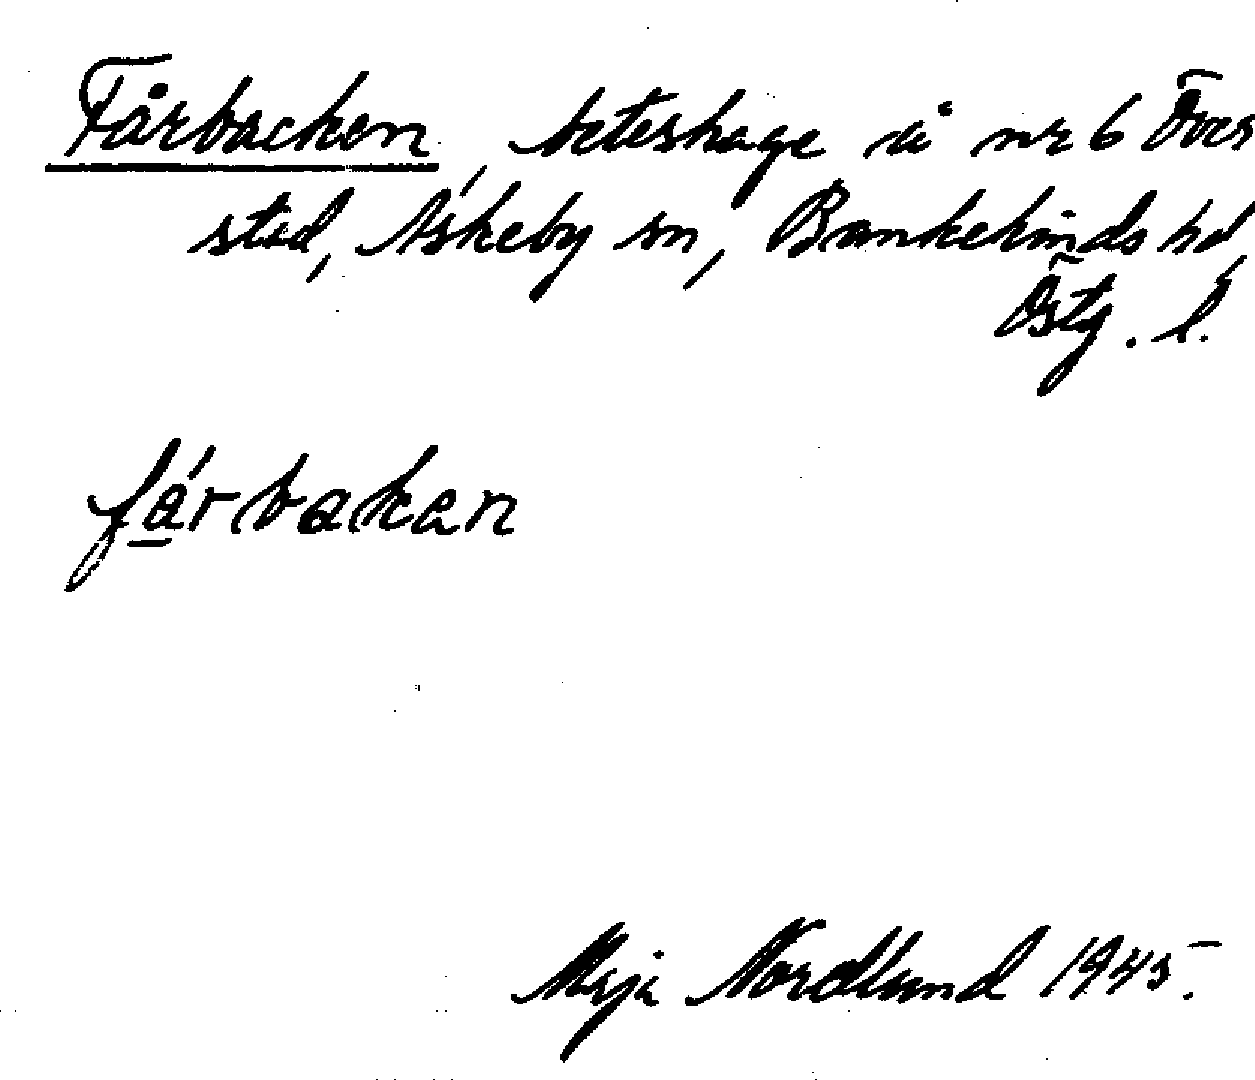 Fårbacken, beteshage å nr 6 Över
stad, Askeby sn, Bankekinds hd,
Östg. l.
fårbakan
Maja Nordlund 1945.